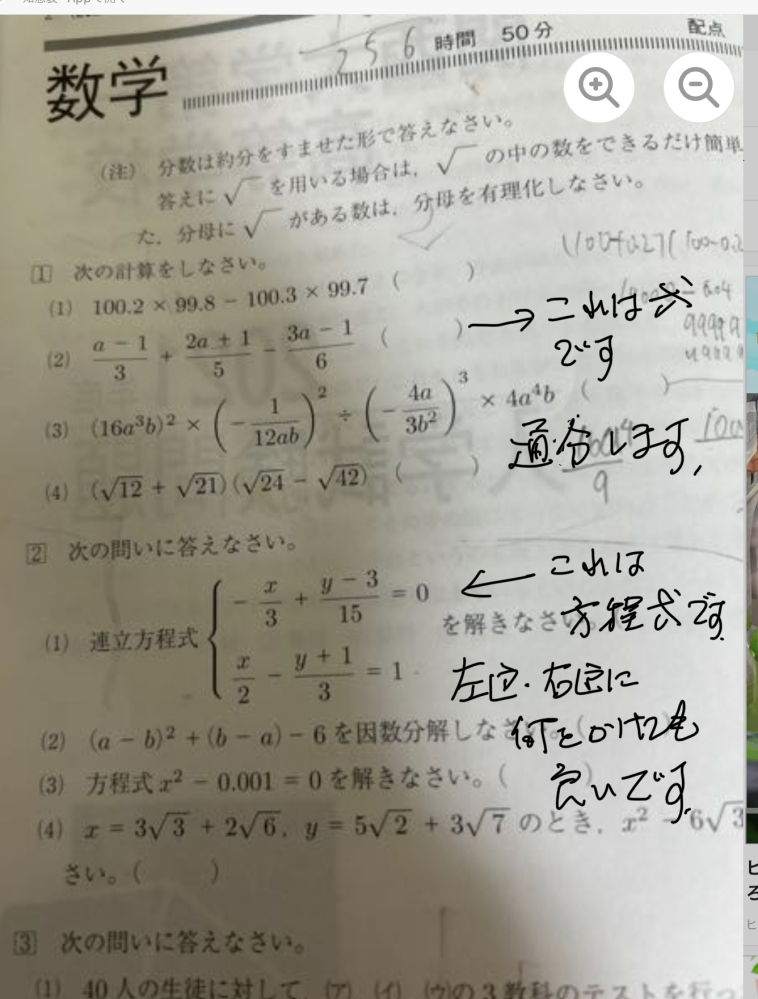 256 時間 50分 配点
数学
(注) 分数は約分をすませた形で答えなさい。
答えに√を用いる場合は，√の中の数をできるだけ簡単
た，分母に√がある数は，分母を有理化しなさい。
1 次の計算をしなさい。
(1) 100.2 × 99.8 − 100.3 × 99.7 ( )
(2) (a − 1)/3 + (2a ± 1)/5 − (3a − 1)/6 ( ) → これは式
です
(3) (16a³b)² × (−1/(12ab))² ÷ (−4a/(3b²))³ × 4a⁴b ( )
通分します，
(4) (√12 + √21)(√24 − √42) ( )
9
2 次の問いに答えなさい。
(1) 連立方程式 { −x/3 + (y − 3)/15 = 0
x/2 − (y + 1)/3 = 1
を解きなさい。
← これは
方程式です
左辺・右辺に
何をかけても
良いです
(2) (a − b)² + (b − a) − 6 を因数分解しなさい。(
(3) 方程式 x² − 0.001 = 0 を解きなさい。( )
(4) x = 3√3 + 2√6，y = 5√2 + 3√7 のとき，x² − 6√3
さい。( )
3 次の問いに答えなさい。
(1) 40人の生徒に対して，(ア)，(イ)，(ウ)の3教科のテストを行っ